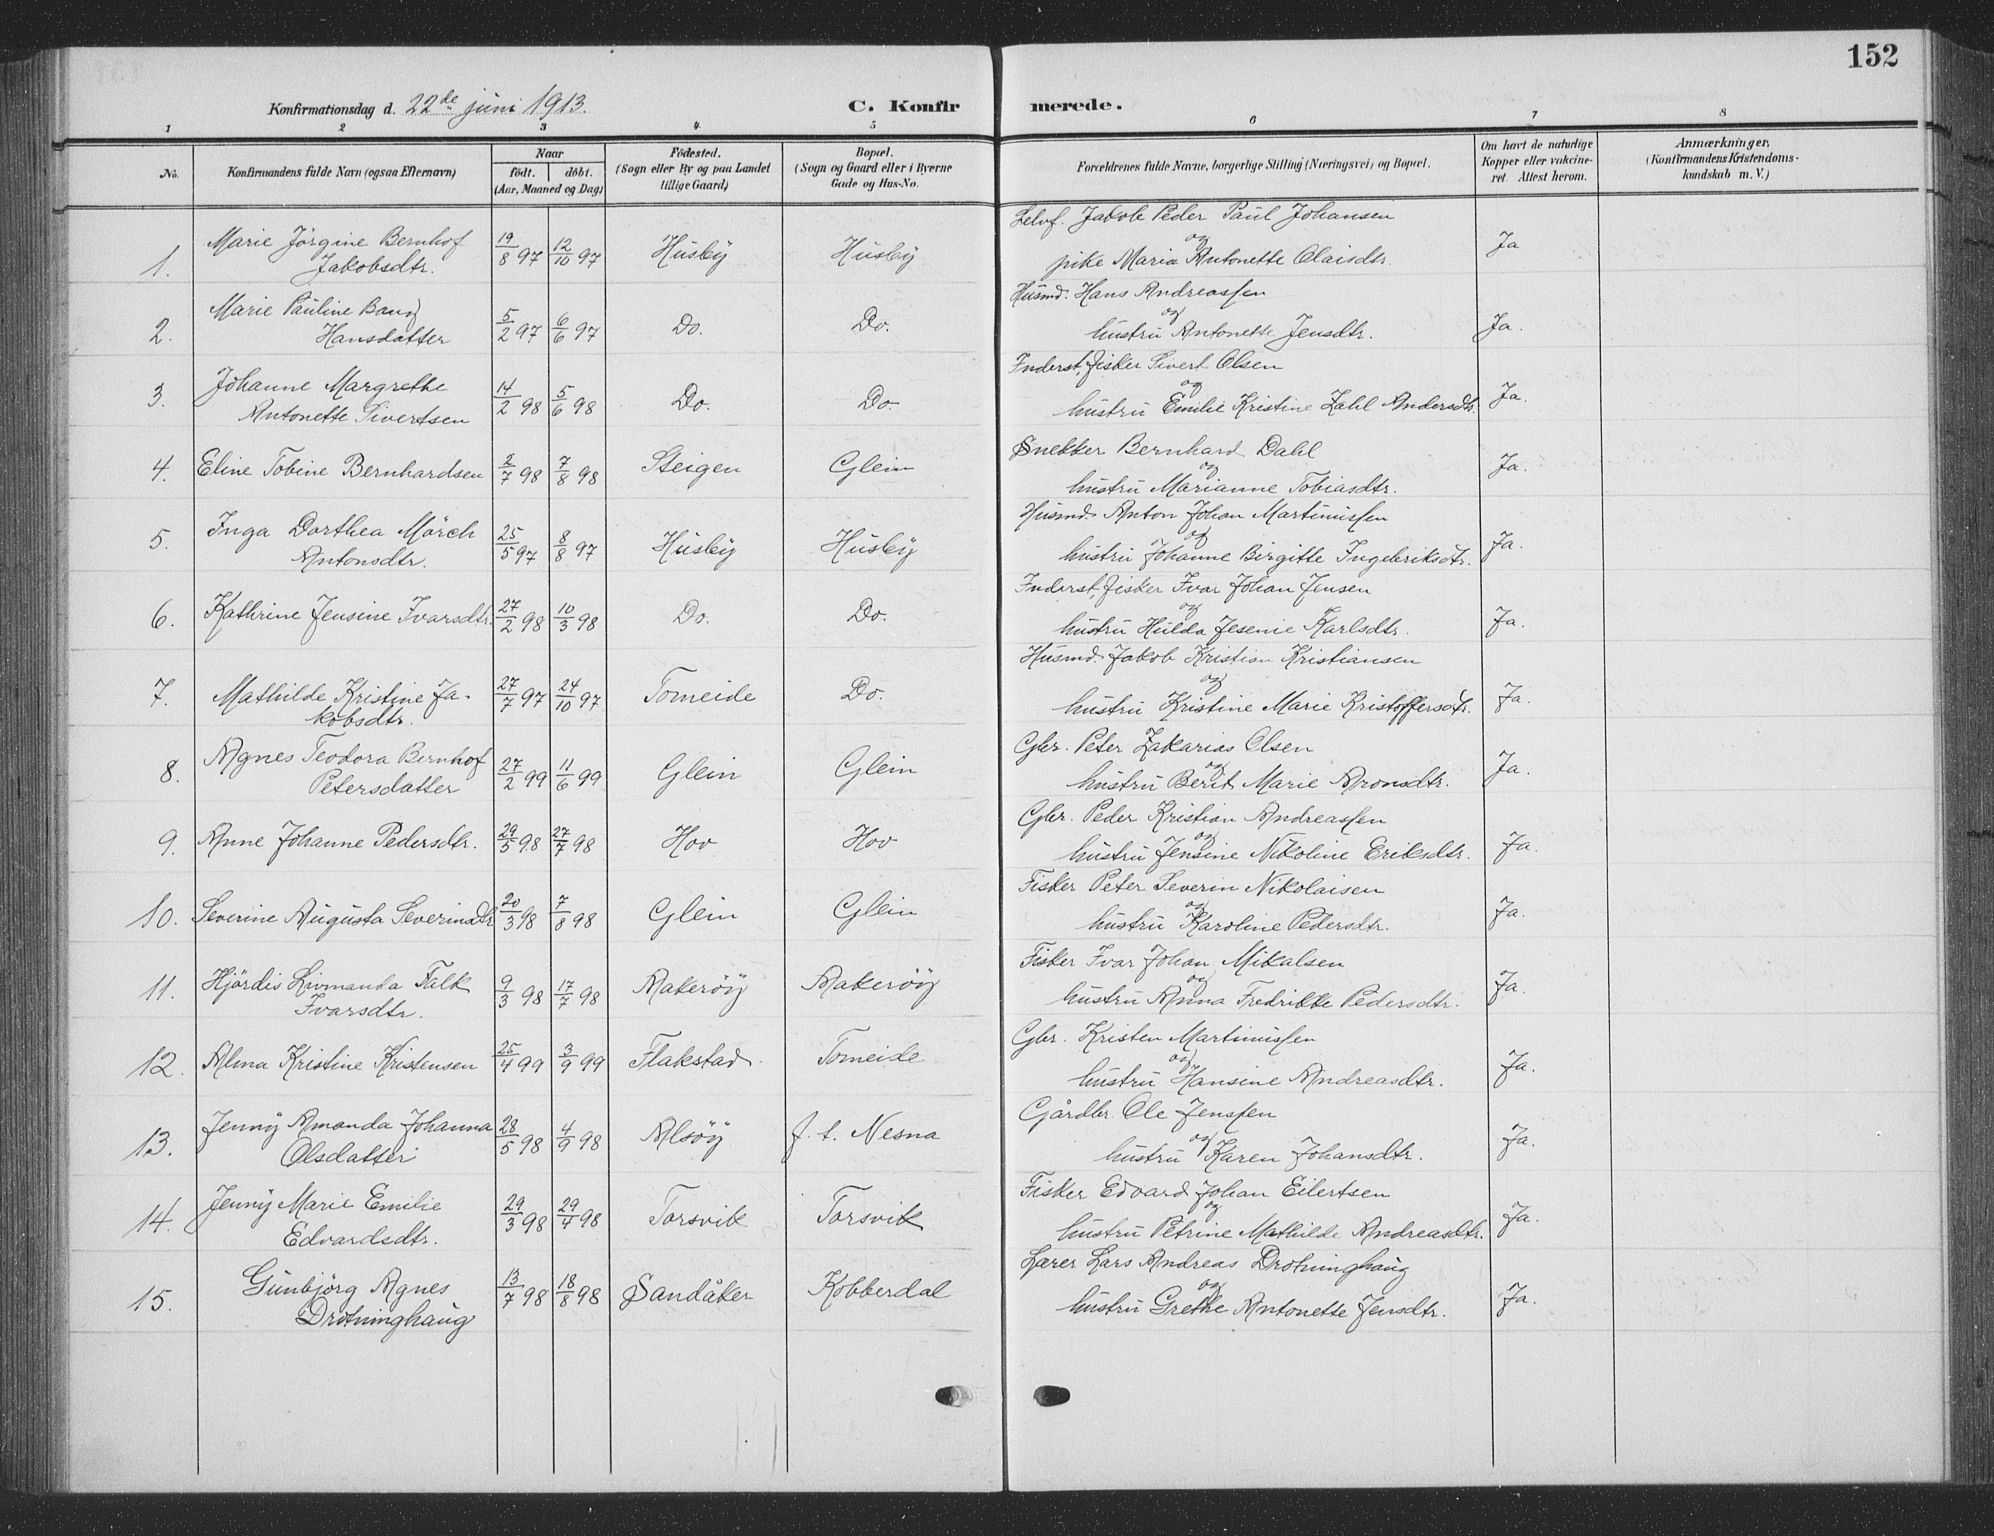 152
Konfirmationsdag d. 22de juni 1913.
C. Konfirmerede.
1 2 3 4 5 6 7 8
No.
Konfirmandens fulde Navn (ogsaa Efternavn)
Naar
født. døbt.
(Aar, Maaned og Dag)
Fødested.
(Sogn eller By og paa Landet
tillige Gaard)
Bopæl.
(Sogn og Gaard eller i Byerne
Gade og Hus-No.
Forældrenes fulde Navne, borgerlige Stilling (Næringsvei) og Bopæl.
Om havt de naturlige
Kopper eller vakcine-
ret. Attest herom.
Anmærkninger.
(Konfirmandens Kristendoms-
kundskab m. V.)
1. Marie Jörgine Bernhof 19/8 97 12/10 97 Husby Husby
Jakobsdtr.
Selvf. Jakob Peder Paul Johansen
og
pike Maria Antonette Olaisdtr. Ja
2. Marie Pauline Bang 5/2 97 6/6 97 Do. Do.
Hansdatter
Husmd. Hans Andreassen
og
hustru Antonette Jensdtr. Ja.
3. Johanne Margrethe 14/2 98 5/6 98 Do. Do.
Antonette Sivertsen
Inderst, fisker Sivert Olsen
og
hustru Emilie Kristine Zahl Andersdtr. Ja.
4. Eline Tobine Bernhardsen 2/7 98 7/8 98 Steigen Glein
Snekker Bernhard Dahl
og
hustru Marianne Tobiasdtr. Ja.
5. Inga Dorthea Mörch 25/5 97 8/8 97 Husby Husby
Antonsdtr.
Husmd. Anton Johan Martinussen
og
hustru Johanne Birgitte Ingebriksdtr. Ja.
6. Kathrine Jensine Ivarsdtr. 27/2 98 10/3 98 Do. Do.
Inderst, fisker Ivar Johan Jensen
og
hustru Hulda Jesenie Karlsdtr. Ja.
7. Mathilde Kristine Ja- 27/7 97 24/10 97 Tomeide Do.
kobsdtr.
Husmd. Jakob Kristian Kristiansen
og
hustru Kristine Marie Kristoffersdtr. Ja.
8. Agnes Teodora Bernhof 27/2 99 11/6 99 Glein Glein
Petersdatter
Gbr. Peter Zakarias Olsen
og
hustru Berit Marie Aronsdtr. Ja.
9. Anne Johanne Pedersdtr. 29/5 98 27/7 98 Hov Hov
Gbr. Peder Kristian Andreassen
og
hustru Jensine Nikoline Eriksdtr. Ja.
10. Severine Augusta Severinsdtr 20/3 98 7/8 98 Glein Glein
Fisker Peter Severin Nikolaisen
og
hustru Karoline Pedersdtr. Ja.
11. Hjördis Livmanda Falk 9/3 98 17/7 98 Aakeröy Aakeröy
Ivarsdtr.
Fisker Ivar Johan Mikalsen
og
hustru Anna Fredrikke Pedersdtr. Ja.
12. Alma Kristine Kristensen 25/4 99 3/9 99 Flakstad Tomeide
Gbr. Kristen Martinussen
og
hustru Hansine Andreasdtr. Ja.
13. Jenny Amanda Johanna 28/5 98 4/9 98 Alsöy f. t. Nesna
Olsdatter
Gårdbr. Ole Jenssen
og
hustru Karen Johansdtr. Ja.
14. Jenny Marie Emilie 29/3 98 29/4 98 Torsvik Torsvik
Edvardsdtr.
Fisker Edvard Johan Eilertsen
og
hustru Petrine Mathilde Andreasdtr. Ja.
15. Gunbjörg Agnes 13/7 98 18/8 98 Sandåker Kobberdal
Drotninghaug
Lærer Lars Andreas Drotninghaug
og
hustru Grethe Antonette Jensdtr. Ja.